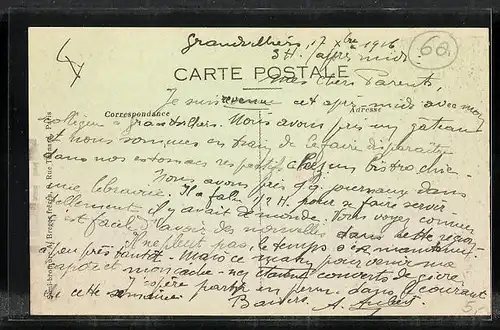 Grandvilliers, 17 Xbre 1916
60
3 H. après midi
CARTE POSTALE
Mes Chers Parents,
Je suis revenu cet apr-midi avec mon
Correspondance
Adresse
collègue à Grandvillers. Nous avons pris un gâteau
et nous sommes en train de le faire disparaître
dans nos estomacs respectifs chez un bistro chic-
Nous avons pris 19 journaux dans
une librairie. Il a fallu 1/2 H. pour se faire servir
tellement il y avait de monde. Vous voyez comme
est facile d'avoir des nouvelles dans cette
il ne pleut pas, le temps s'est maintenu
à peu près tantôt. Mais ce matin pour venir ma
capote et mon cache-nez étaient couverts de givre
J'espère partir en perm. dans le courant
de cette semaine
Baisers. A. Aubert
5,-